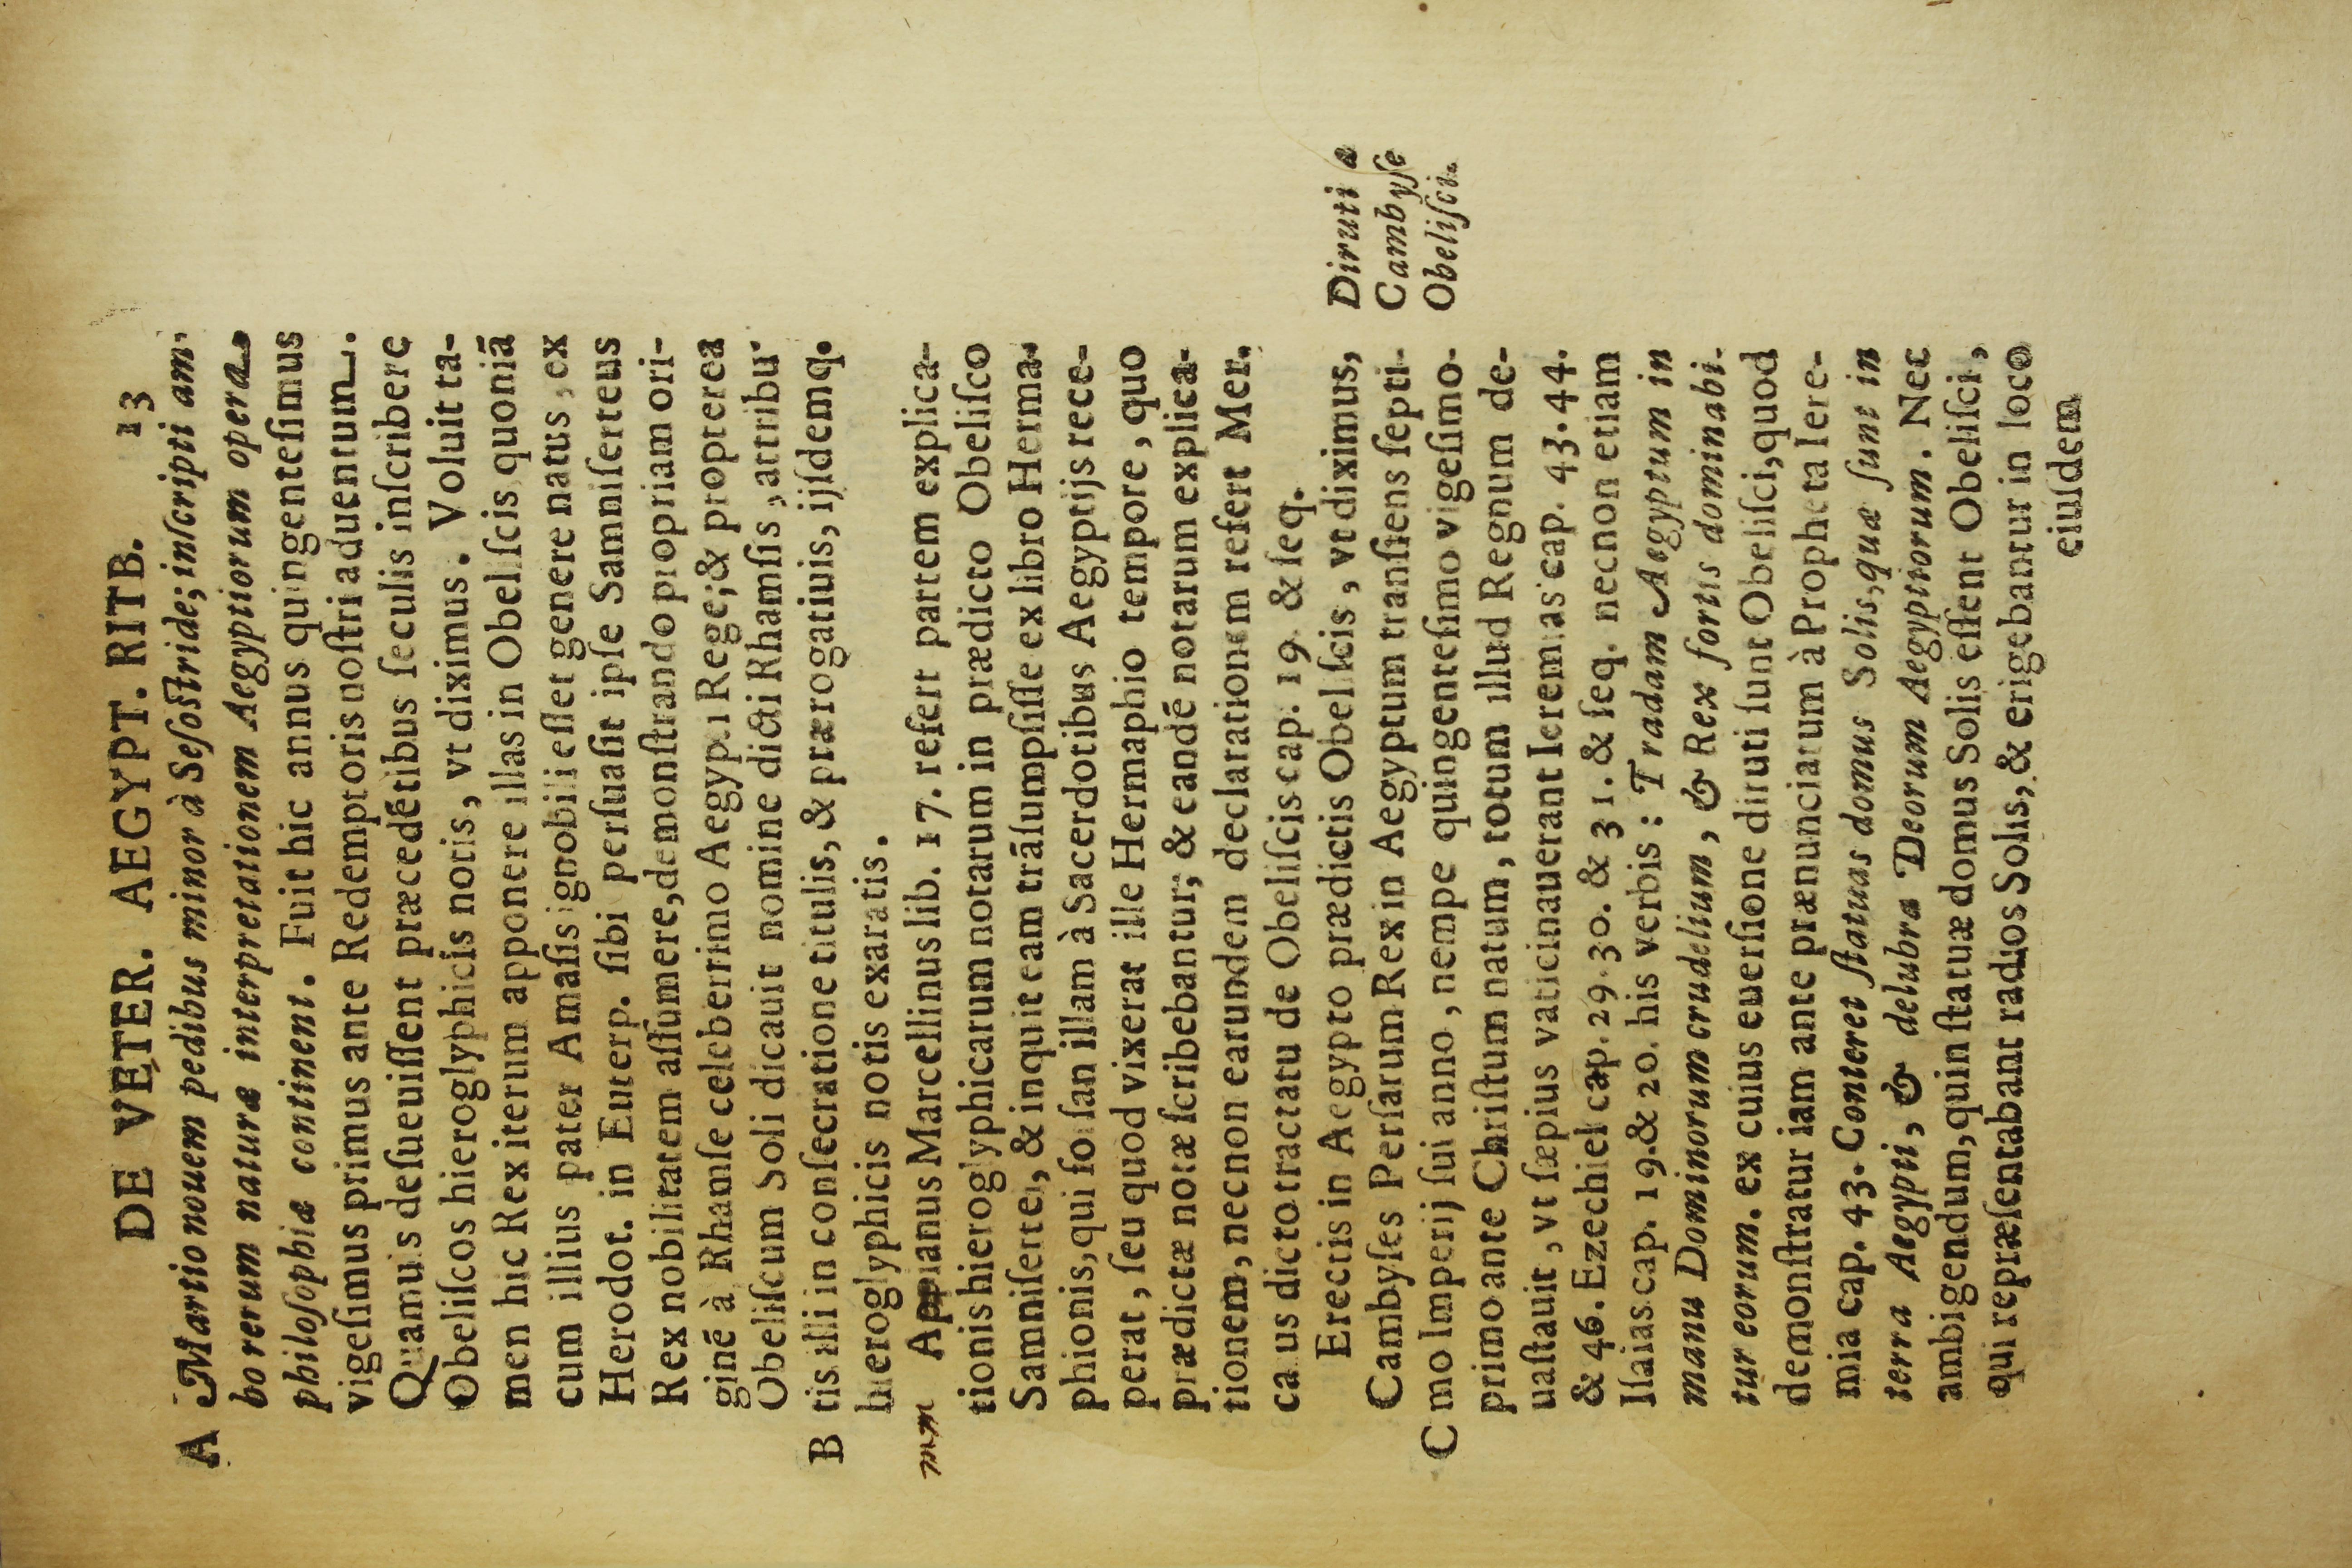 DE VETER. AEGYPT. RITB. 13
A Martio nouem pedibus minor à Sesostride; inscripti am-
bo rerum naturæ interpretationem Aegyptiorum opera
philosophiæ continent. Fuit hic annus quingentesimus
vigesimus primus ante Redemptoris nostri aduentum.
Quamuis desueuissent præcedẽtibus seculis inscribere
Obeliscos hieroglyphicis notis, vt diximus. Voluit ta-
men hic Rex iterum apponere illas in Obeliscis quoniã
cum illius pater Amasis ignobili esset genere natus, ex
Herodot. in Euterp. sibi persuasit ipse Samniserteus
Rex nobilitatem assumere, demonstrando propriam ori-
ginẽ à Rhamse celeberrimo Aegypti Rege; & propterea
Obeliscum Soli dicauit nomine dicti Rhamsis, attribu-
B tis illi in consecratione titulis, & prærogatiuis, ijsdemq.
hieroglyphicis notis exaratis.
mm Appianus Marcellinus lib. 17. refert partem explica-
tionis hieroglyphicarum notarum in prædicto Obelisco
Samnisertei, & inquit eam trãsumpsisse ex libro Herma-
phionis, qui forsan illam à Sacerdotibus Aegyptijs rece-
perat, seu quod vixerat ille Hermaphio tempore, quo
prædictæ notæ scribebantur; & eandẽ notarum explica-
tionem, necnon earumdem declarationem refert Mer.
catus dicto tractatu de Obeliscis cap. 19. & seq.
Erectis in Aegypto prædictis Obeliscis, vt diximus,
Diruti a
Cambyse
Obelisci.
Cambyses Persarum Rex in Aegyptum transiens septi-
C mo Imperij sui anno, nempe quingentesimo vigesimo-
primo ante Christum natum, totum illud Regnum de-
uastauit, vt sæpius vaticinauerant Ieremias cap. 43. 44.
& 46. Ezechiel cap. 29. 30. & 31. & seq. necnon etiam
Isaias cap. 19. & 20. his verbis: Tradam Aegyptum in
manu Dominorum crudelium, & Rex fortis dominabi-
tur eorum. ex cuius euersione diruti sunt Obelisci, quod
demonstratur iam ante prænunciatum à Propheta Iere-
mia cap. 43. Conteret statuas domus Solis, quæ sunt in
terra Aegypti, & delubra Deorum Aegyptiorum. Nec
ambigendum, quin statuæ domus Solis essent Obelisci,
qui repræsentabant radios Solis, & erigebantur in loco
eiusdem